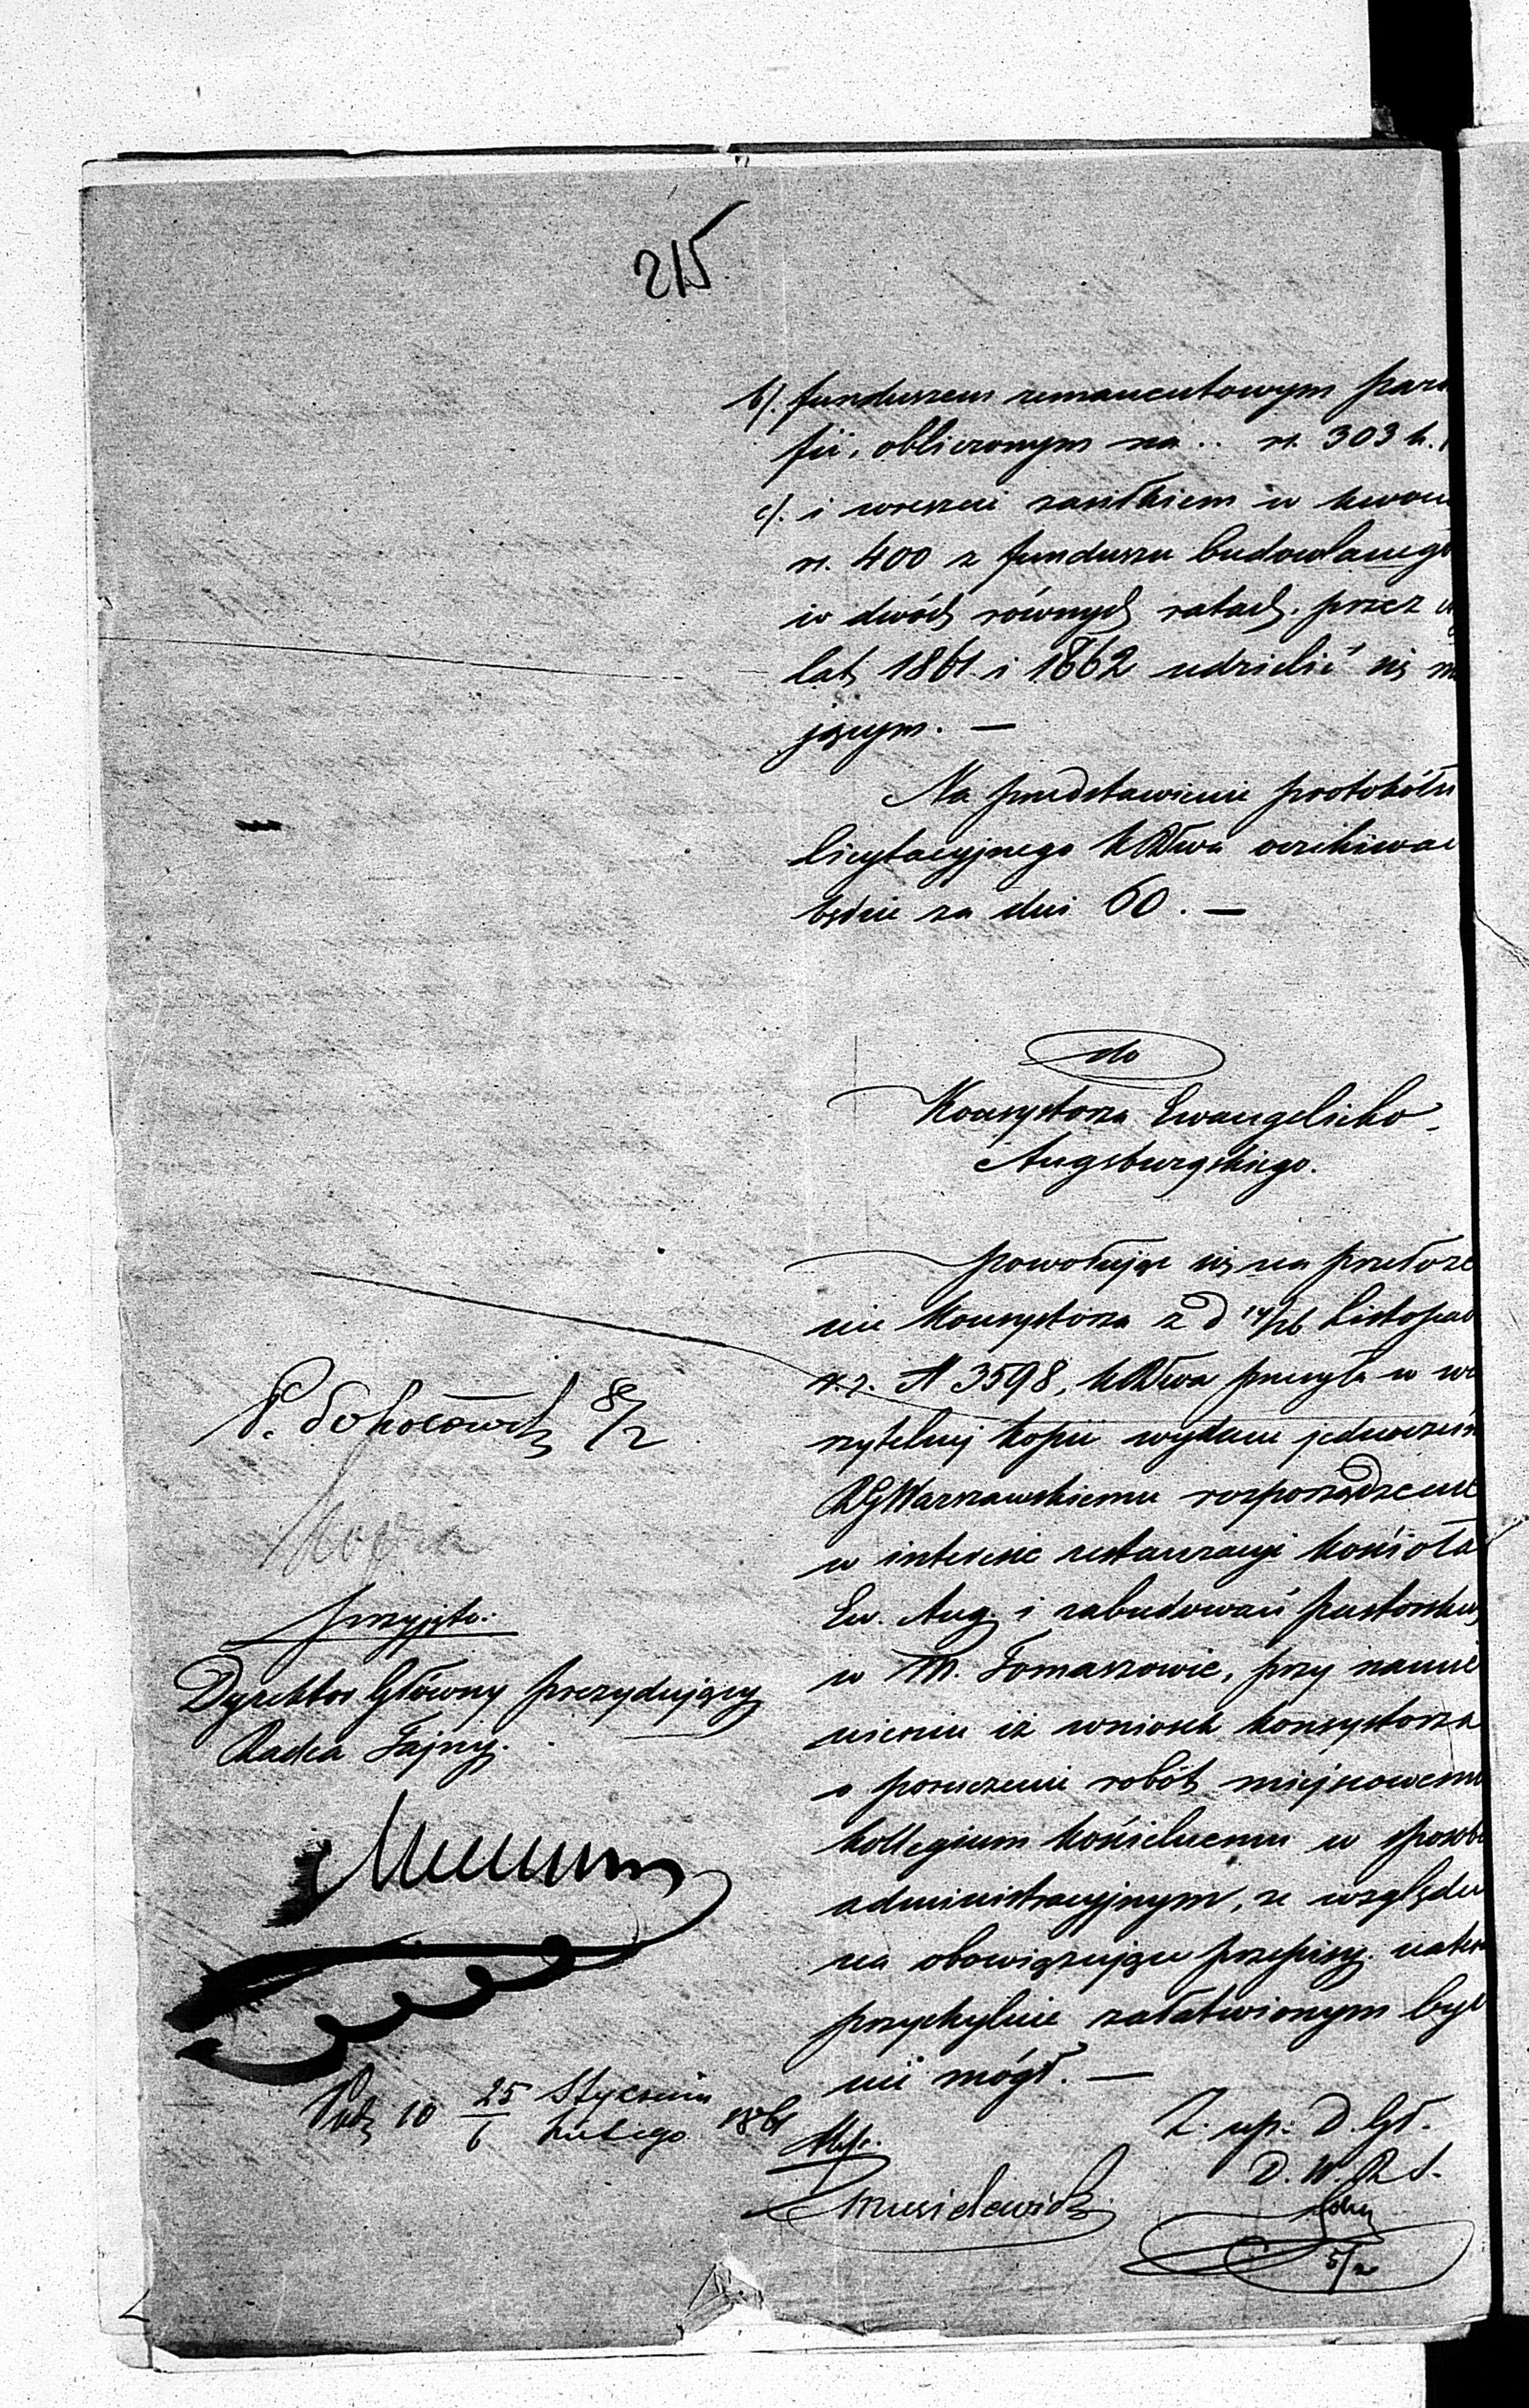 215
b/. funduszem remanentowym para
fii, obliczonym na .. rs. 303 k.
c/. i wreszcie zasiłkiem w kwoci
rs. 400 z funduszu budowlanego
w dwóch równych ratach, przez
lat 1861 i 1862 udzielić się m
jącym. —
Na przedstawienie protokółu
licytacyjnego KRdwa oczekiwać
będzie za dni 60. —
do
Konsystorza Ewangelicko-
Augsburgskiego.
Powołując się na przełoże
nie Konsystorza z d 14/26 Listopad
r. z. N 3598, KRdwa przesyła w wi
rzytelnej kopii wydane jednocześn
RGWarszawskiemu rozporządzenie
w interesie restauracyi kościoła
Ew. Aug. i zabudowań pastorskich
w M. Tomaszowie, przy nadmie
nieniu iż wniosek konsystorza
o poruczenie robót miejscowemu
kollegium kościelnemu w sposob
administracyjnym, ze względu
na obowiązujące przepisy,
przychylnie załatwionym być
nie mógł. —
P. Sokołowsk 8/2
przyjęto:
Dyrektor Główny Prezydujący
Radca Tajny.
10 25/6 Stycznia Lutego 1861
Z. up: D. Gł.
D. W. R S.
5/2